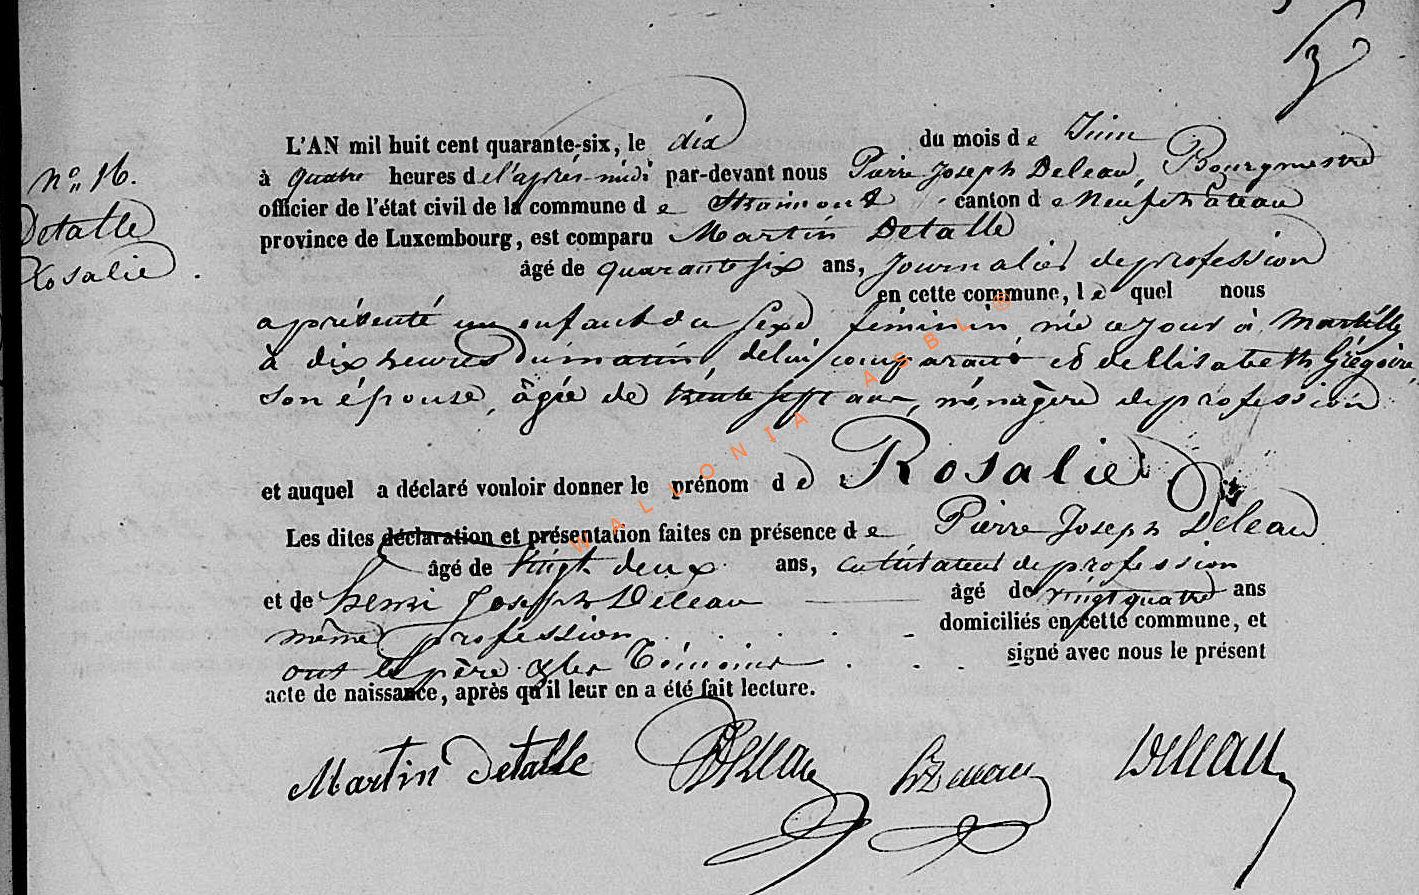 3
N° 16.
Detalle
Rosalie.
L'AN mil huit cent quarante-six, le dix du mois de Juin
à quatre heures de l'après-midi par-devant nous Pierre Joseph Deleau, Bourgmestre
officier de l'état civil de la commune de Straimont canton de Neufchâteau
province de Luxembourg, est comparu Martin Detalle
âgé de quarante six ans, journalier de profession
en cette commune, le quel nous
a présenté un enfant du sexe féminin née ce jour à Martilly
à dix heures du matin, de lui comparant et de Elisabeth Grégoire,
son épouse, âgée de trente sept ans, ménagère de profession
et auquel a déclaré vouloir donner le prénom de Rosalie
Les dites déclaration et présentation faites en présence de Pierre Joseph Deleau
âgé de vingt deux ans, cultivateur de profession
et de Henri Joseph Deleau âgé de vingt quatre ans
même profession domiciliés en cette commune, et
ont le père & les témoins signé avec nous le présent
acte de naissance, après qu'il leur en a été fait lecture.
Martin Detalle Deleau Deleau
WALLONIA ASBL ®